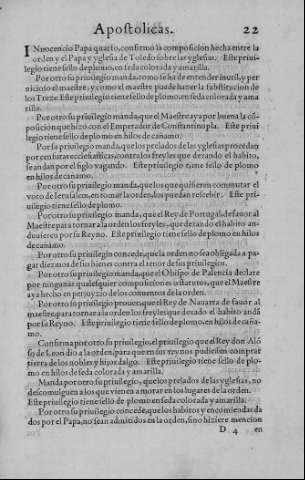 Apostolicas. 22
INnocencio Papa quarto, confirmó la composicion hecha entre la
orden y el Papa y yglesia de Toledo sobre las yglesias. Este priui-
legio tiene sello de plomo, en seda colorada y amarilla.
Por otro su priuilegio manda, como se ha de entender inutil, y per
nicioso el maestre, y como el maestre puede hazer la substitucion de
los Treze. Este priuilegio tiene sello de plomo, en seda colorada y ama
rilla.
Por otro su priuilegio manda, que el Maestre aya por buena la cõ
posicion que hizo con el Emperador de Constantinopla. Este priui
legio tiene sello de plomo en hilos de cañamo.
Por su priuilegio manda, que los prelados de las yglesias procedan
por censuras ecclesiasticas, contra los freyles que dexando el habito,
se andan por el siglo vagando. Este priuilegio tiene sello de plomo
en hilos de cañamo.
Por otro su priuilegio manda, que los que quisieren commutar el
voto de Ierusalem, en tomar la orden, los puedan rescebir. Este pri-
uilegio tiene sello de plomo.
Por otro su priuilegio manda, que el Rey de Portugal, de fauor al
Maestre para tornar a la orden los freyles, que dexando el habito an-
duuieren por su Reyno. Este priuilegio tiene sello de plomo en hilos
de cañamo.
Por otro su priuilegio concede, que la orden no sea obligada a pa-
gar diezmos de sus bienes contra el tenor de sus priuilegios.
Por otro su priuilegio manda, que el Obispo de Palencia declare
por ningunas qualesquier composiciones o statutos, que el Maestre
aya hecho en perjuyzio de los conuentos de la orden.
Por otro su priuilegio prouee, que el Rey de Nauarra de fauor al
maestre para tornar a la orden los freyles que dexado el habito andã
por su Reyno. Este priuilegio tiene sello de plomo, en hilos de caña-
mo.
Confirma por otro su priuilegio, el priuilegio que el Rey don Alõ
so de Leon dio a la orden, para que en sus reynos pudiessen comprar
tierra de los nobles y hijosdalgo. Este priuilegio tiene sello de plo-
mo en hilos de seda colorada y amarilla.
Manda por otro su priuilegio, que los prelados de las yglesias, no
descomulguen a los que vienen a morar en los lugares de la orden.
Este priuilegio tiene sello de plomo en seda colorada y amarilla.
Por otro su priuilegio concede, que los habitos y encomiendas da
dos por el Papa, no sean admitidos en la orden, sino hiziere mencion
D 4 en